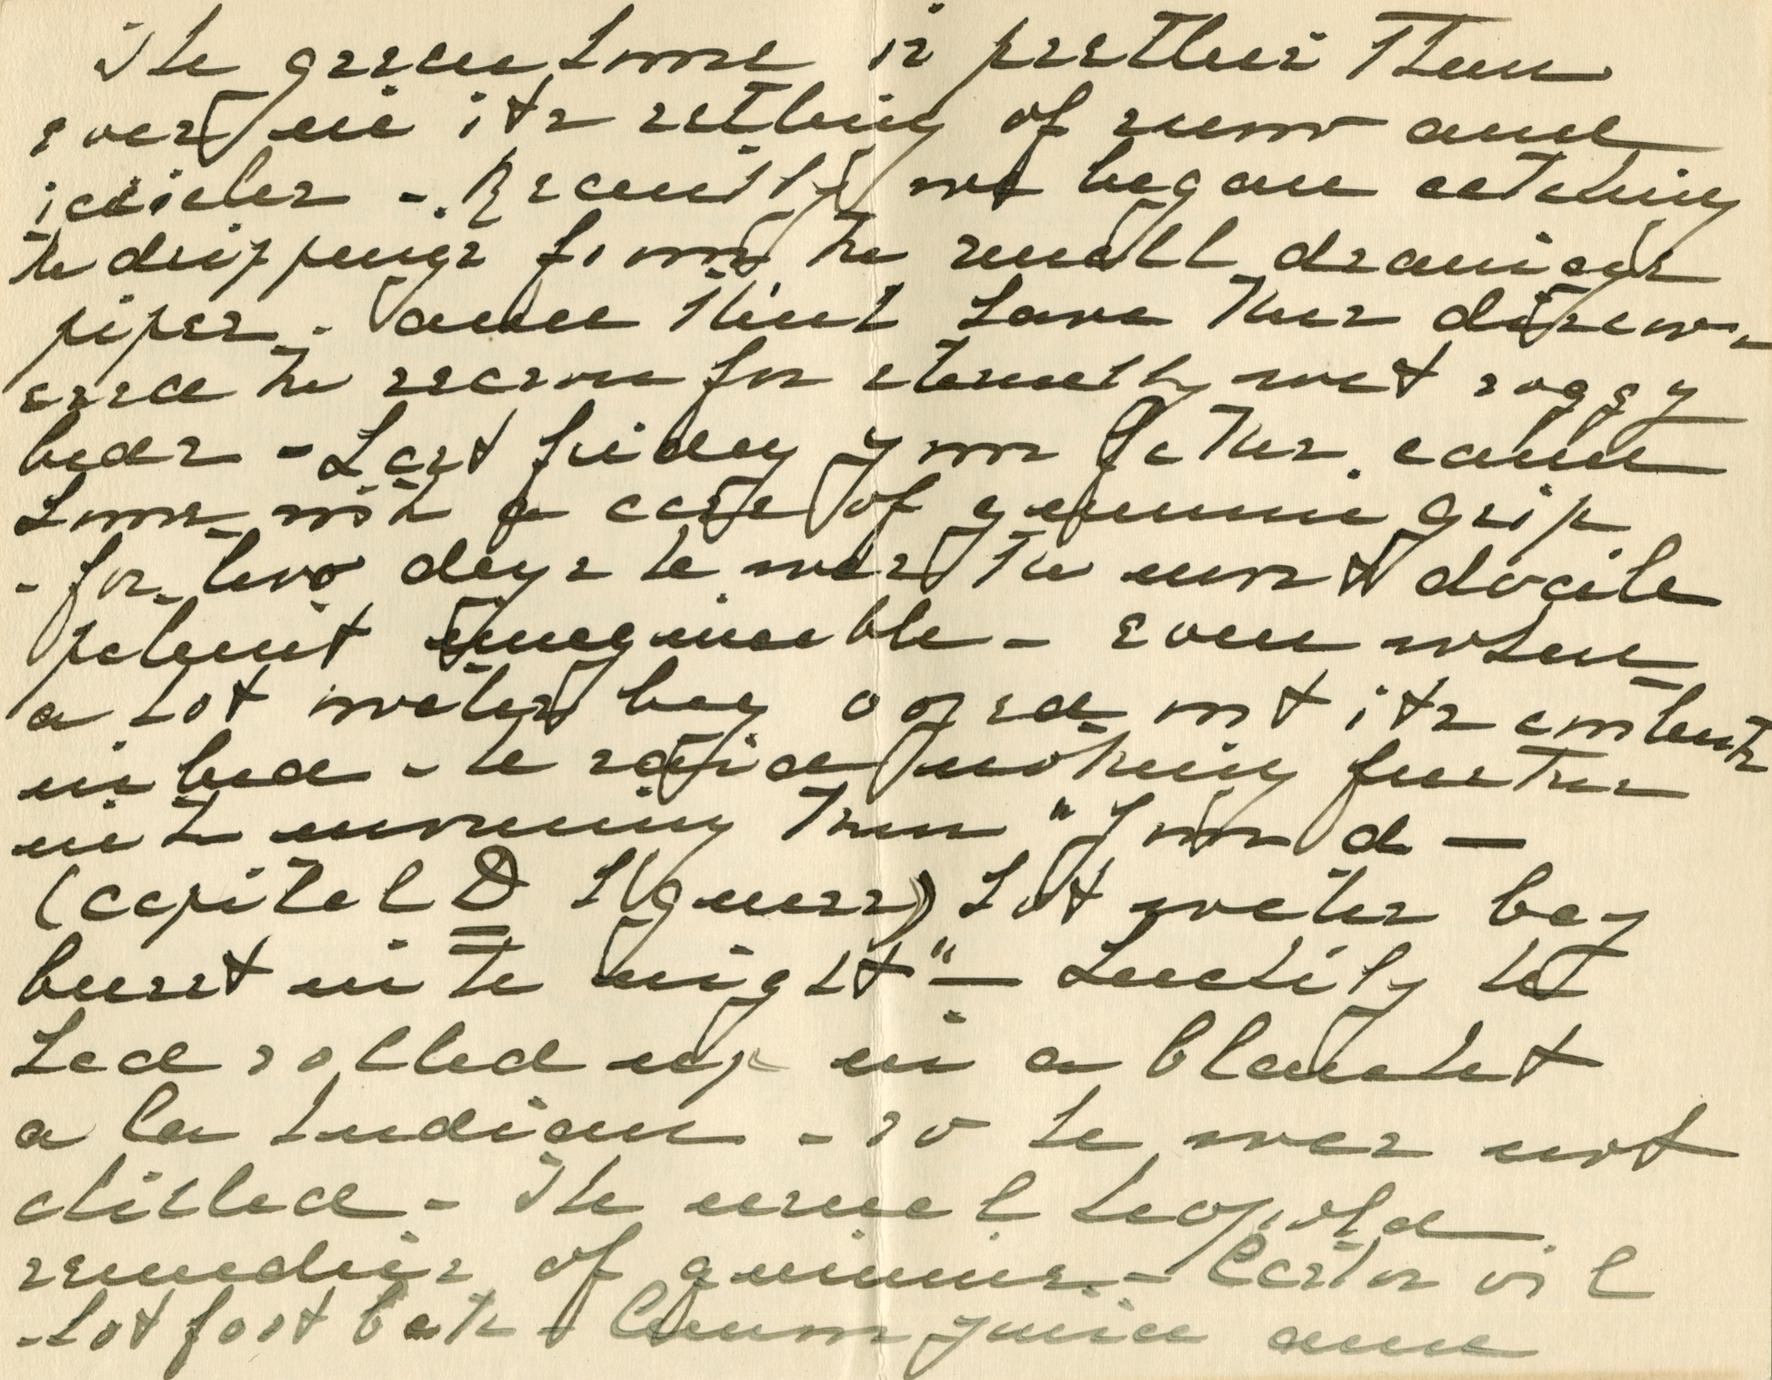 The green house is prettier than
ever in its setting of snow and
icicles - Recently we began catching
the drippings from the small drainage
piper - and think have thus discov-
ered the reason for eternally wet soggy
beds - Last friday your father came
home with a case of genuine grip
- for two days he was the most docile
patient imaginable - even when
a hot water bag oozed out its contents
in bed - he said nothing further
in the morning than "Your d —
(capital D I guess) hot water bag
burst in the night" — Luckily he
had rolled up in a blanket
a la Indian - so he was not
chilled - The usual Leopold
remedies of quinine - Castor oil
- hot foot bath - Lemon juice and